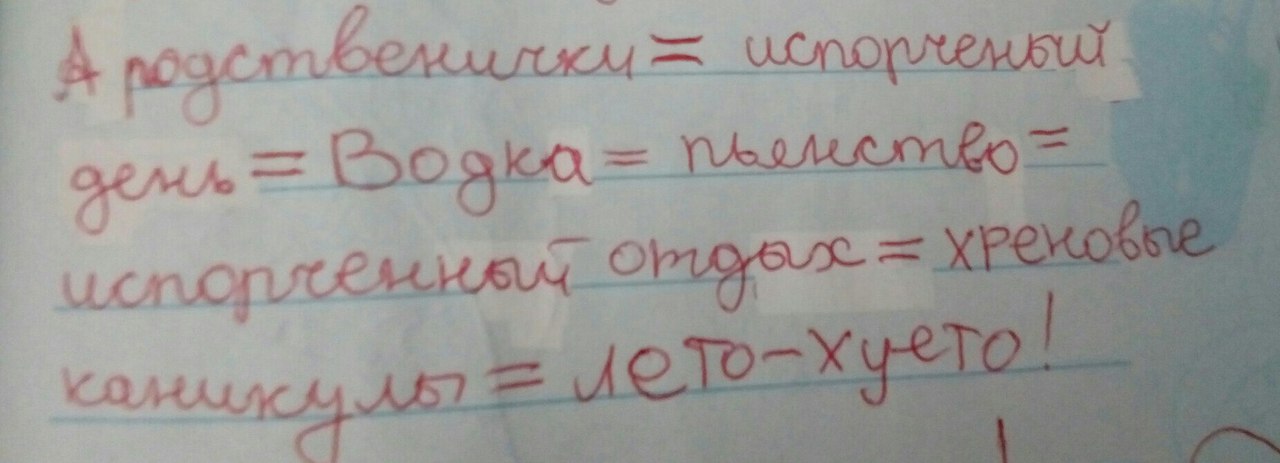 А родственички = испорченый
день = Водка = пьенство =
испорченный отдых = хреновые
каникулы = лето-хуето!